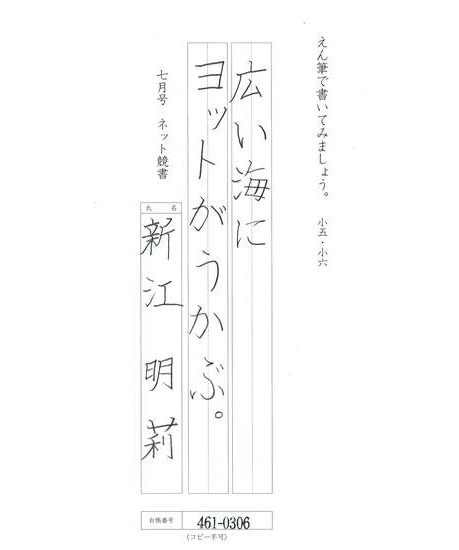 えん筆で書いてみましょう。 小五・小六
広い海に
ヨットがうかぶ。
七月号 ネット競書
氏名
新江 明莉
台帳番号 461-0306
(コピー不可)